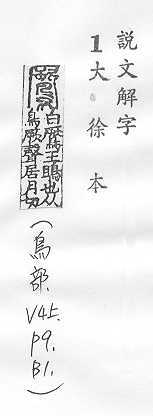 說文解字
1大。徐本
鷢 白鷢王鴡也从
鳥厥聲居月切
(鳥部. V4上. P9. B1.)